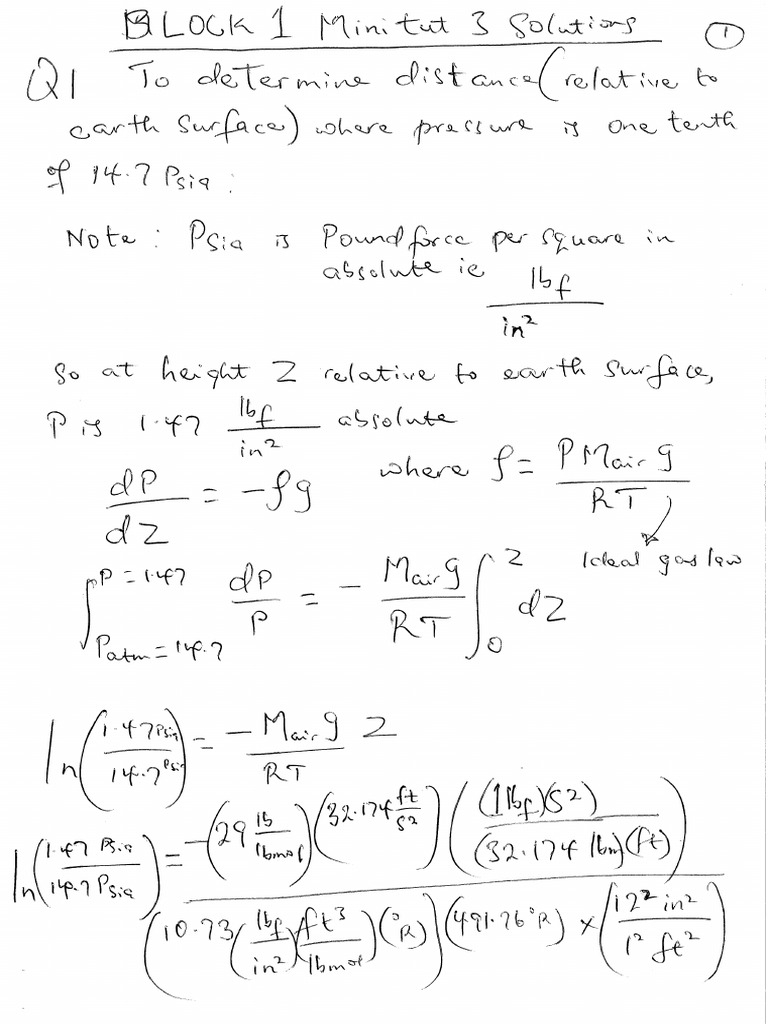 BLOCK 1 Minitut 3 Solutions
1
Q1 To determine distance (relative to
earth surface) where pressure is one tenth
of 14.7 Psia:
Note: Psia is Pound force per square in
absolute ie lbf/in²
So at height Z relative to earth surface,
P is 1.47 lbf/in² absolute
dP/dZ = -ρg where ρ = P Mair g / RT
Ideal gas law
∫_{Patm = 14.7}^{P = 1.47} dP/P = - Mair g / RT ∫_0^Z dZ
ln(1.47 Psia / 14.7 Psia) = - Mair g / RT Z
ln(1.47 Psia / 14.7 Psia) = -(29 lb/lbmol)(32.174 ft/s²)((1 lbf)(s²) / (32.174 lbm)(ft)) / (10.73 (lbf/in²)(ft³/lbmol)(°R))(491.76 °R) × (12² in² / 1² ft²)